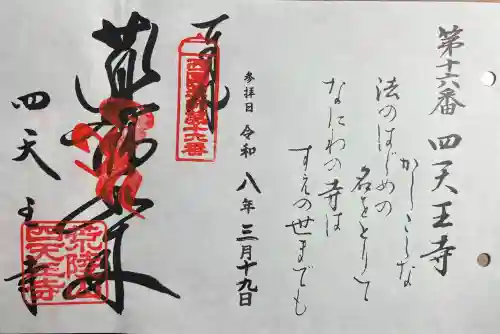 第十六番 四天王寺
かしこしな
法のはじめの
名をとりて
なにわの寺は
すえの世までも
参拝日 令和 八年 三月十九日
奉拝
西国薬師第十六番
薬師如来
四天王寺
荒陵山
四天王寺